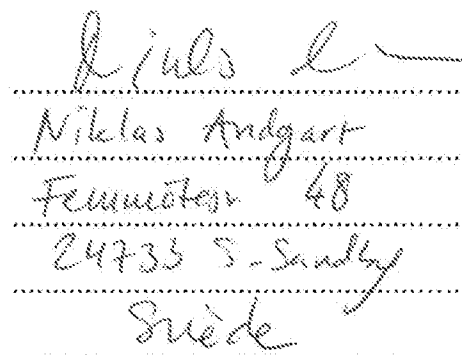 Niklas Andgart
Femmöten 48
24735 S-Sandby
Suède